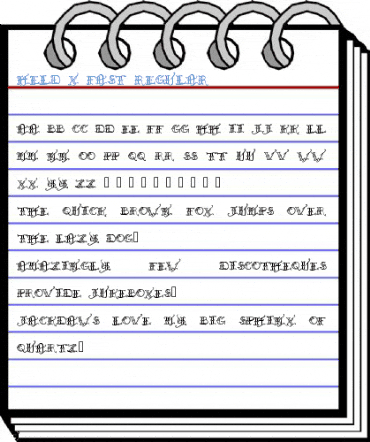 HELD X FAST REGULAR
AA BB CC DD EE FF GG HH II JJ KK LL
MM NN OO PP QQ RR SS TT UU VV WW
XX YY ZZ
THE QUICK BROWN FOX JUMPS OVER
THE LAZY DOG
AMAZINGLY FEW DISCOTHEQUES
PROVIDE JUKEBOXES
JACKDAWS LOVE MY BIG SPHINX OF
QUARTZ